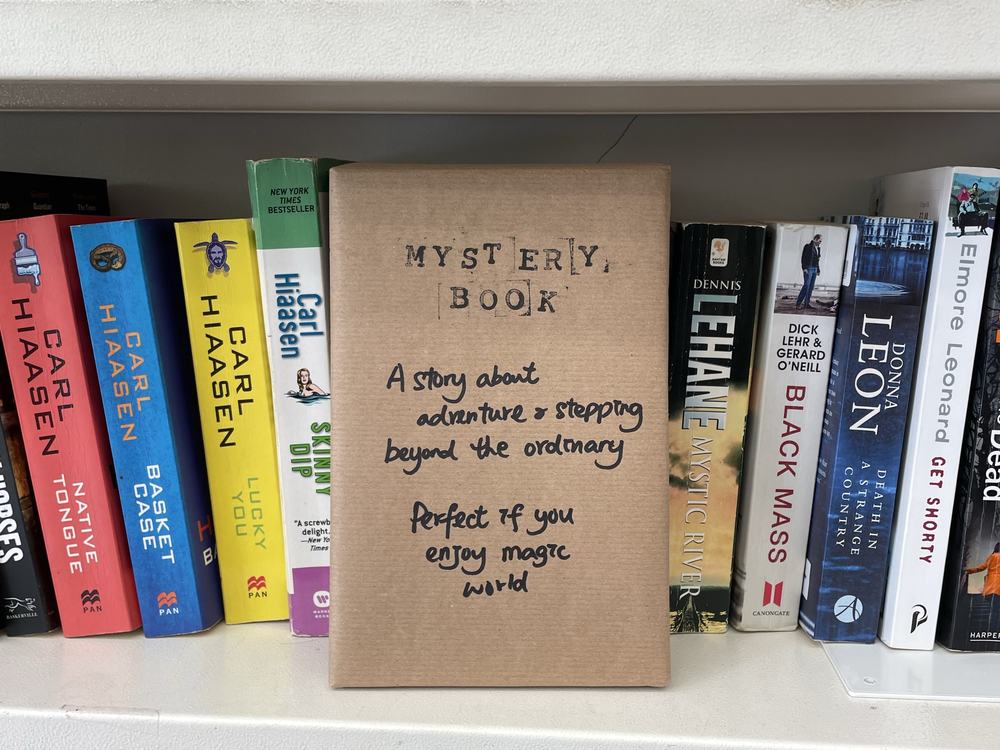 CARL HIAASEN
NATIVE TONGUE
PAN
CARL HIAASEN
BASKET CASE
PAN
CARL HIAASEN
LUCKY YOU
PAN
NEW YORK
TIMES
BESTSELLER
Carl
Hiaasen
SKINNY
DIP
"A screwb
delight.
—New Yo
Times
MYSTERY
BOOK
A story about
adventure & stepping
beyond the ordinary
Perfect if you
enjoy magic
world
DENNIS
LEHANE
MYSTIC RIVER
DICK
LEHR &
GERARD
O'NEILL
BLACK MASS
CANONGATE
DONNA
LEON
DEATH IN
A STRANGE
COUNTRY
Elmore Leonard
GET SHORTY
Dead
HARPER